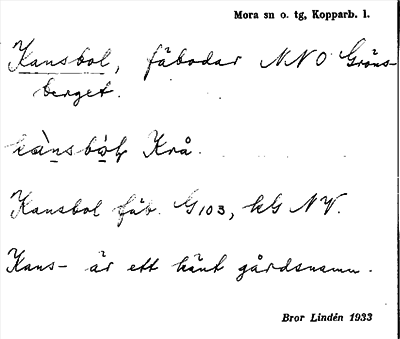 Mora sn o. tg, Kopparb. l.
Kansbol, fäbodar NNO Gräns-
berget.
Krå.
Kansbol fäb. G103, kG NV.
Kans- är ett känt gårdsnamn.
Bror Lindén 1933